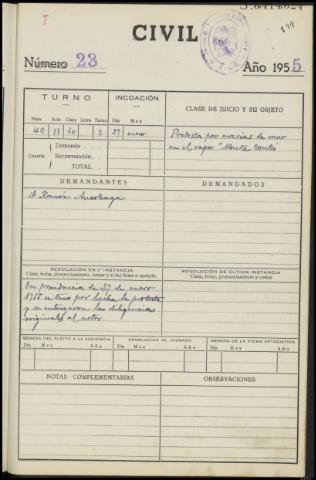 CIVIL
Número 23
Año 1955
TURNO
INCOACIÓN
CLASE DE JUICIO Y SU OBJETO
Núm. Acta Clase Letra Turno Día Mes
40 13 3 27 enero
Protesta por averías de mar
en el vapor "Monte
Cuantía
Demanda
Reconvención
TOTAL
DEMANDANTES
DEMANDADOS
D. Ramón
RESOLUCIÓN EN 1ª INSTANCIA
Clase, fecha, pronunciamiento, costas y si fué firme o apelada.
RESOLUCIÓN DE ÚLTIMA INSTANCIA
Clase, fecha, pronunciamiento y costas
En providencia de 27 de enero
1955 se tuvo por hecha la protesta
y se entregaron las diligencias
originales al actor
REMESA DEL PLEITO A LA AUDIENCIA
DEVOLUCIÓN AL JUZGADO
REMESA DE LA FICHA ESTADÍSTICA
Día Mes Año
Día Mes Año
Día Mes Año
NOTAS COMPLEMENTARIAS
OBSERVACIONES